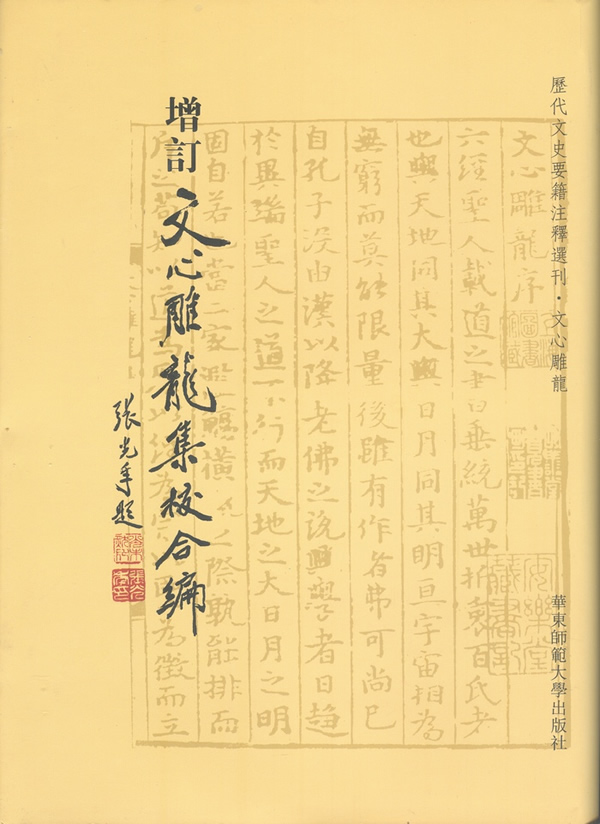 歷代文史要籍注釋選刊・文心雕龍
華東師範大學出版社
文心雕龍序
六經聖人載道之書也垂統萬世折衷百氏者
也與天地同其大與日月同其明亘宇宙相為
無窮而莫能限量後雖有作者弗可尚已
自孔子沒由漢以降老佛之說興學者日趨
於異端聖人之道不行而天地之大日月之明
固自若 當二家 橫 之際孰能排而
為徵而立
增訂文心雕龍集校合編
張光年題